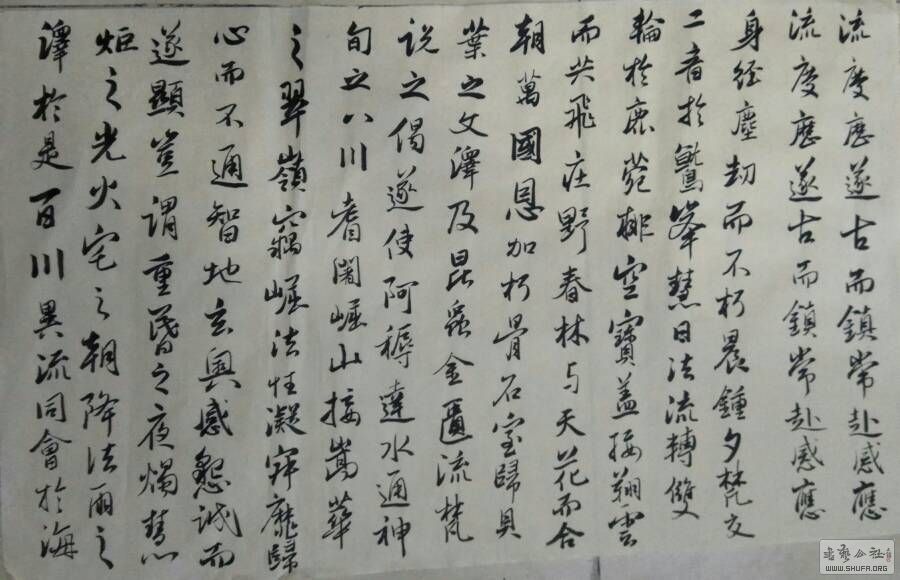 流慶歷遂古而鎮常赴感應
流慶歷遂古而鎮常赴感應
身經塵劫而不朽晨鍾夕梵交
二音於鷲峯慧日法流轉雙
輪於鹿菀排空寶蓋接翔雲
而共飛莊野春林与天花而合
朝萬國恩加朽骨石室歸貝
葉之文澤及昆蟲金匱流梵
說之偈遂使阿耨達水通神
旬之八川耆闍崛山接嵩華
之翠嶺竊崛法性凝寂靡歸
心而不通智地玄奧感懇誠而
遂顯豈謂重昏之夜燭慧
炬之光火宅之朝降法雨之
澤於是百川異流同會於海
書藝公社
WWW.SHUFA.ORG